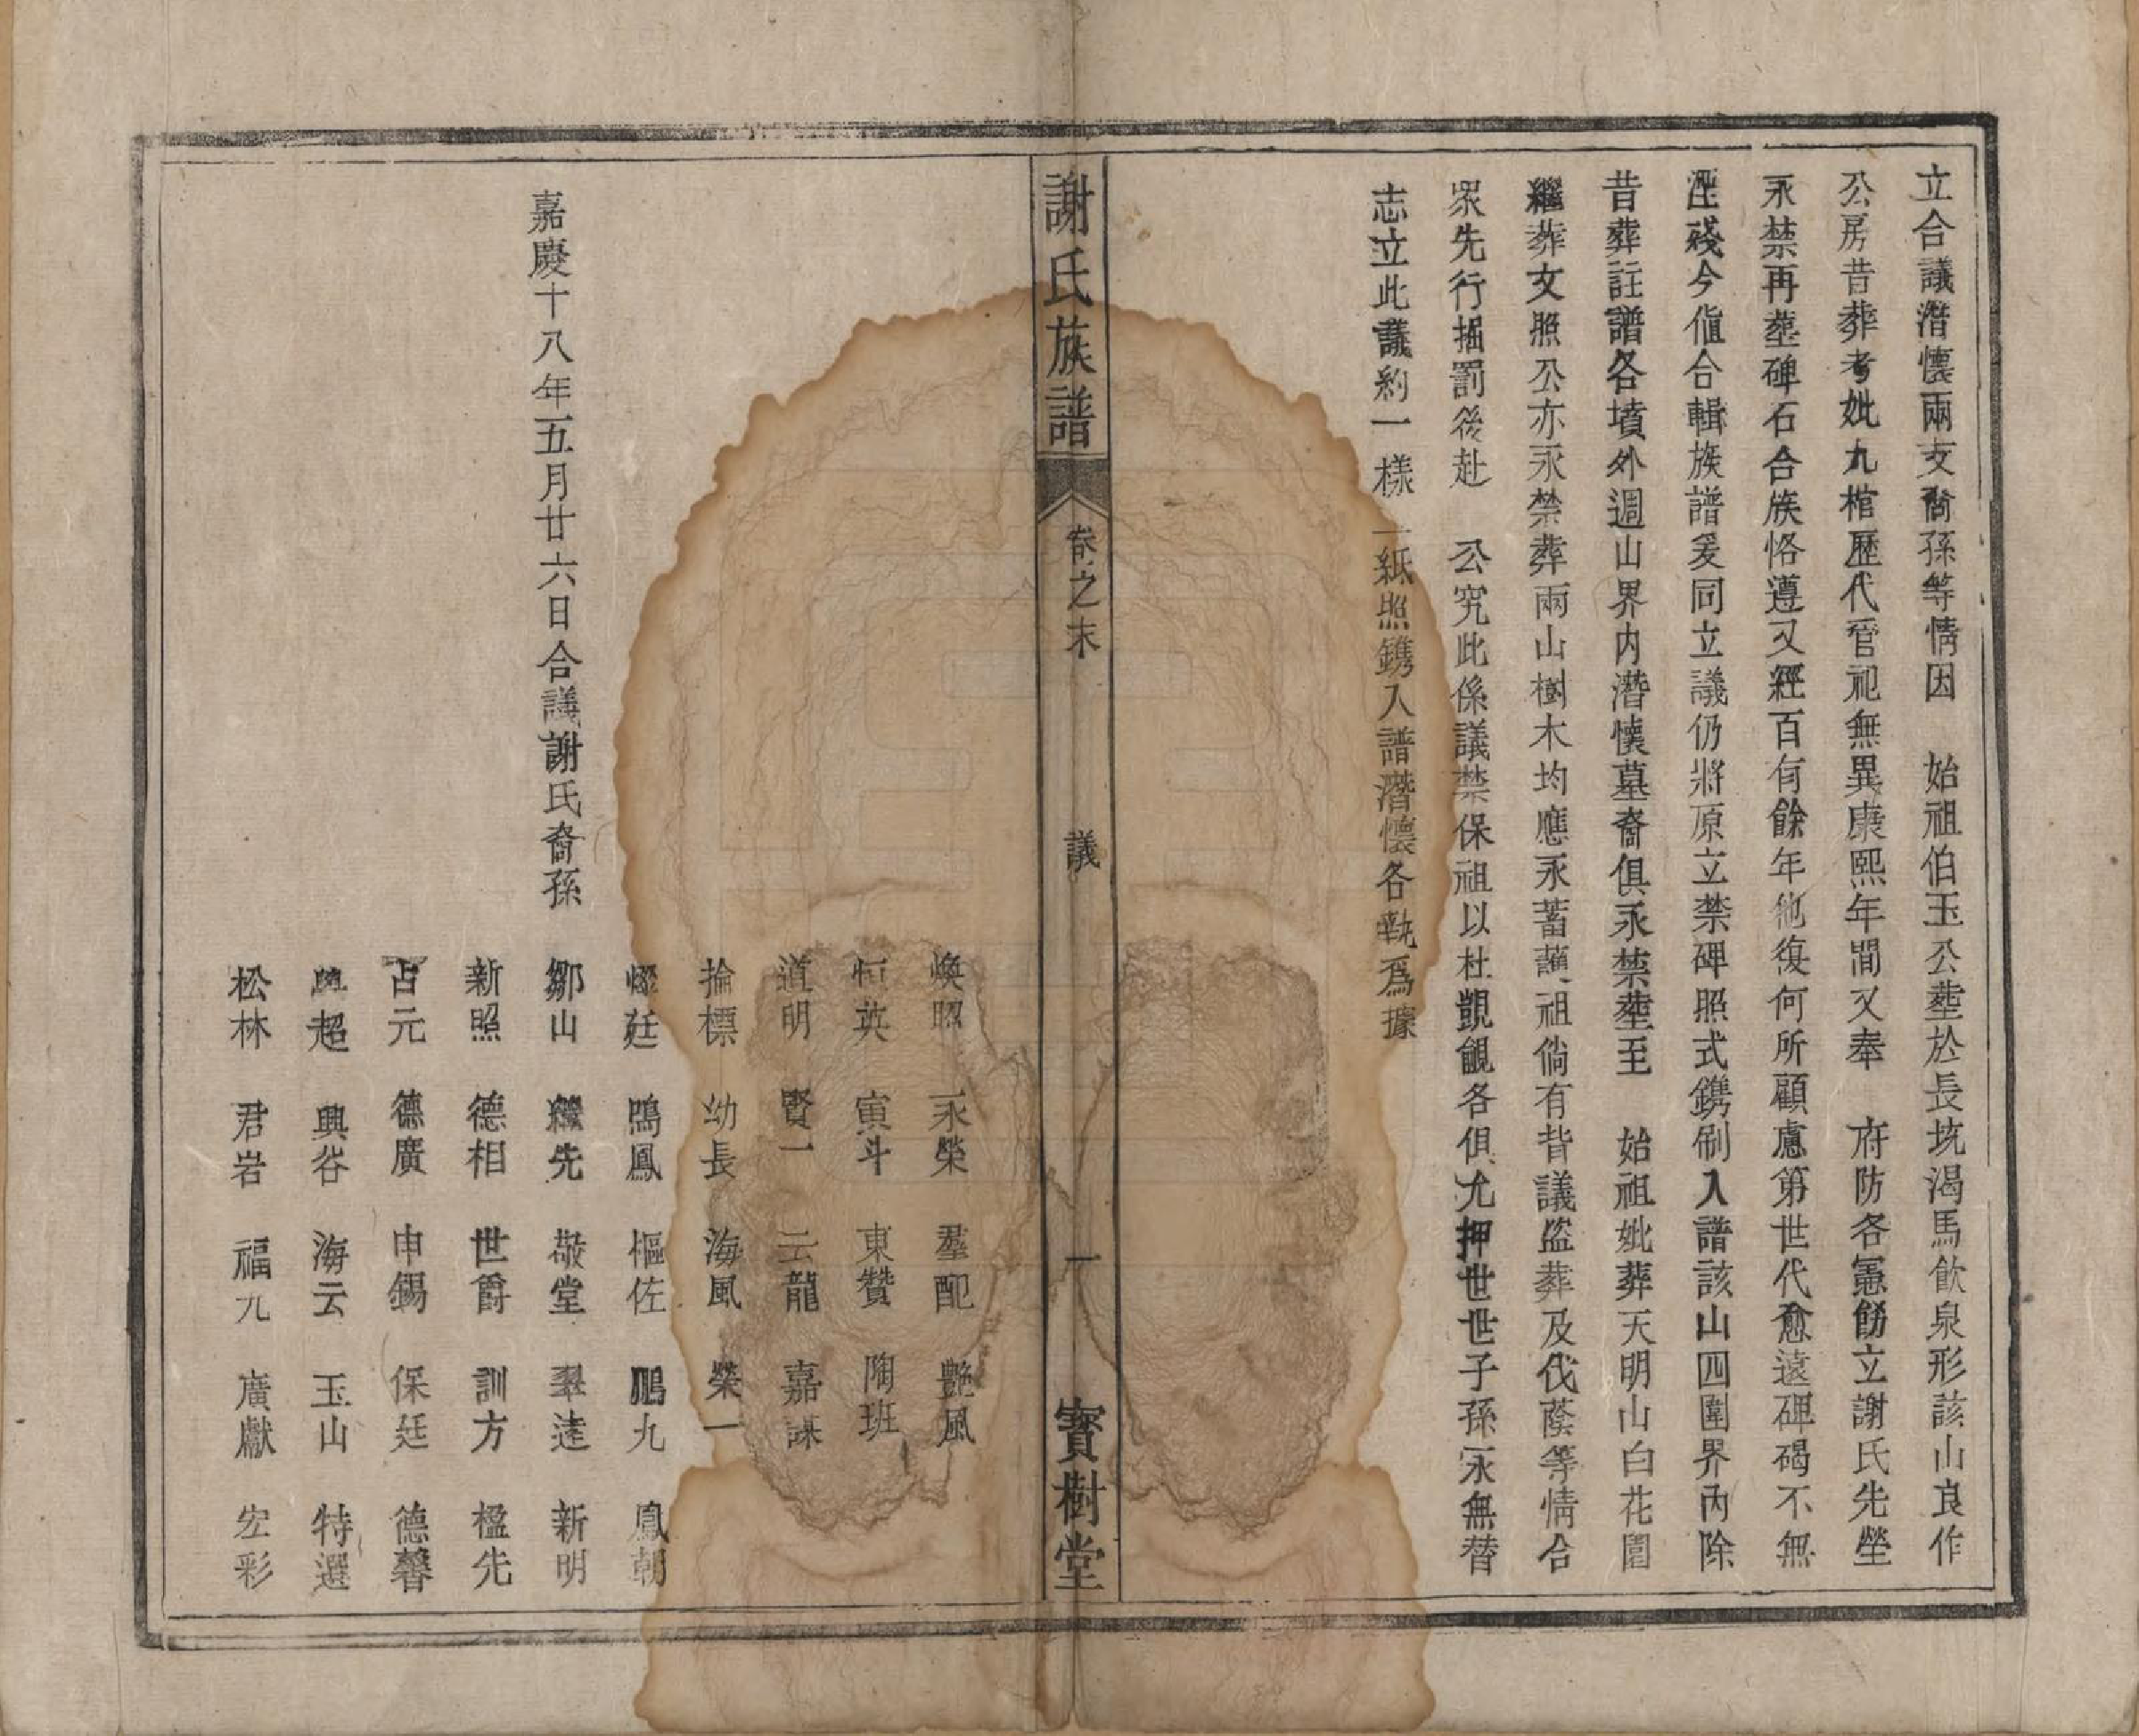 立合議潛懷兩支裔孫等情因　始祖伯玉公塟於長坑渴馬飲泉形該山良作
公房昔葬考妣九棺歷代官祀無異康熙年間又奉　府防各憲飭立謝氏先塋
永禁再塟碑石合族恪遵又經百有餘年他復何所顧慮第世代愈遠碑碣不無
湮殘今值合輯族譜爰同立議仍將原立禁碑照式鐫刷入譜該山四圍界內除
昔葬註譜各墳外週山界内潛懷墓裔俱永禁塟至　始祖妣葬天明山白花園
繼葬文照公亦永禁葬兩山樹木均應永蓄蔭祖倘有背議盜葬及伐蔭等情合
眾先行掘罰後赴　公究此係議禁保祖以杜覬覦各俱允押世世子孫永無替
志立此議約一樣二紙照鐫入譜潛懷各執爲據
謝氏族譜　卷之末　議　一　寳樹堂
煥照　永榮　羣配　艷風
恒英　寅斗　東贊　陶班
道明　賢一　云龍　嘉謀
掄標　幼長　海風　榮一
燦廷　鳴鳳　樞佐　鵬九　鳳朝
嘉慶十八年五月廿六日合議謝氏裔孫　鄒山　繼先　敬堂　翠逵　新明
新照　德相　世爵　訓方　楹先
占元　德廣　申錫　保廷　德馨
興超　興谷　海云　玉山　特選
松林　君岩　福九　廣獻　宏彩